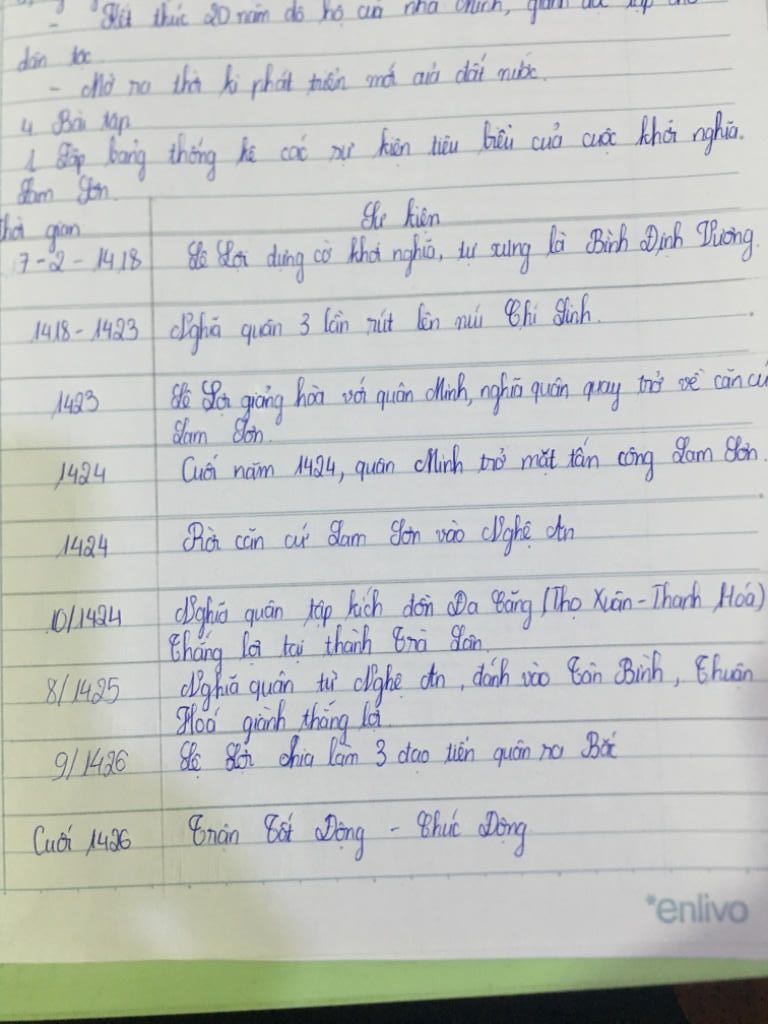 - Kết thúc 20 năm đô hộ của nhà Minh, giành độc lập cho
dân tộc
- Mở ra thời kì phát triển mới của đất nước.
4 Bài tập
1 Lập bảng thống kê các sự kiện tiêu biểu của cuộc khởi nghĩa.
Lam Sơn.
Thời gian Sự kiện
7-2-1418 Lê Lợi dựng cờ khởi nghĩa, tự xưng là Bình Định Vương.
1418-1423 Nghĩa quân 3 lần rút lên núi Chí Linh.
1423 Lê Lợi giảng hòa với quân Minh, nghĩa quân quay trở về căn cứ
Lam Sơn.
1424 Cuối năm 1424, quân Minh trở mặt tấn công Lam Sơn.
1424 Rời căn cứ Lam Sơn vào Nghệ An
10/1424 Nghĩa quân tập kích đồn Đa Căng (Thọ Xuân-Thanh Hoá)
Thắng lợi tại thành Trà Lân.
8/1425 Nghĩa quân từ Nghệ An, đánh vào Tân Bình, Thuận
Hoá giành thắng lợi
9/1426 Lê Lợi chia làm 3 đạo tiến quân ra Bắc
Cuối 1426 Trận Tốt Động - Chúc Động
*enlivo